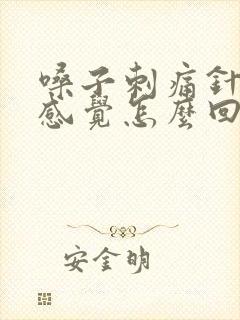 嗓子刺痛針
感覺怎麼回
安金明